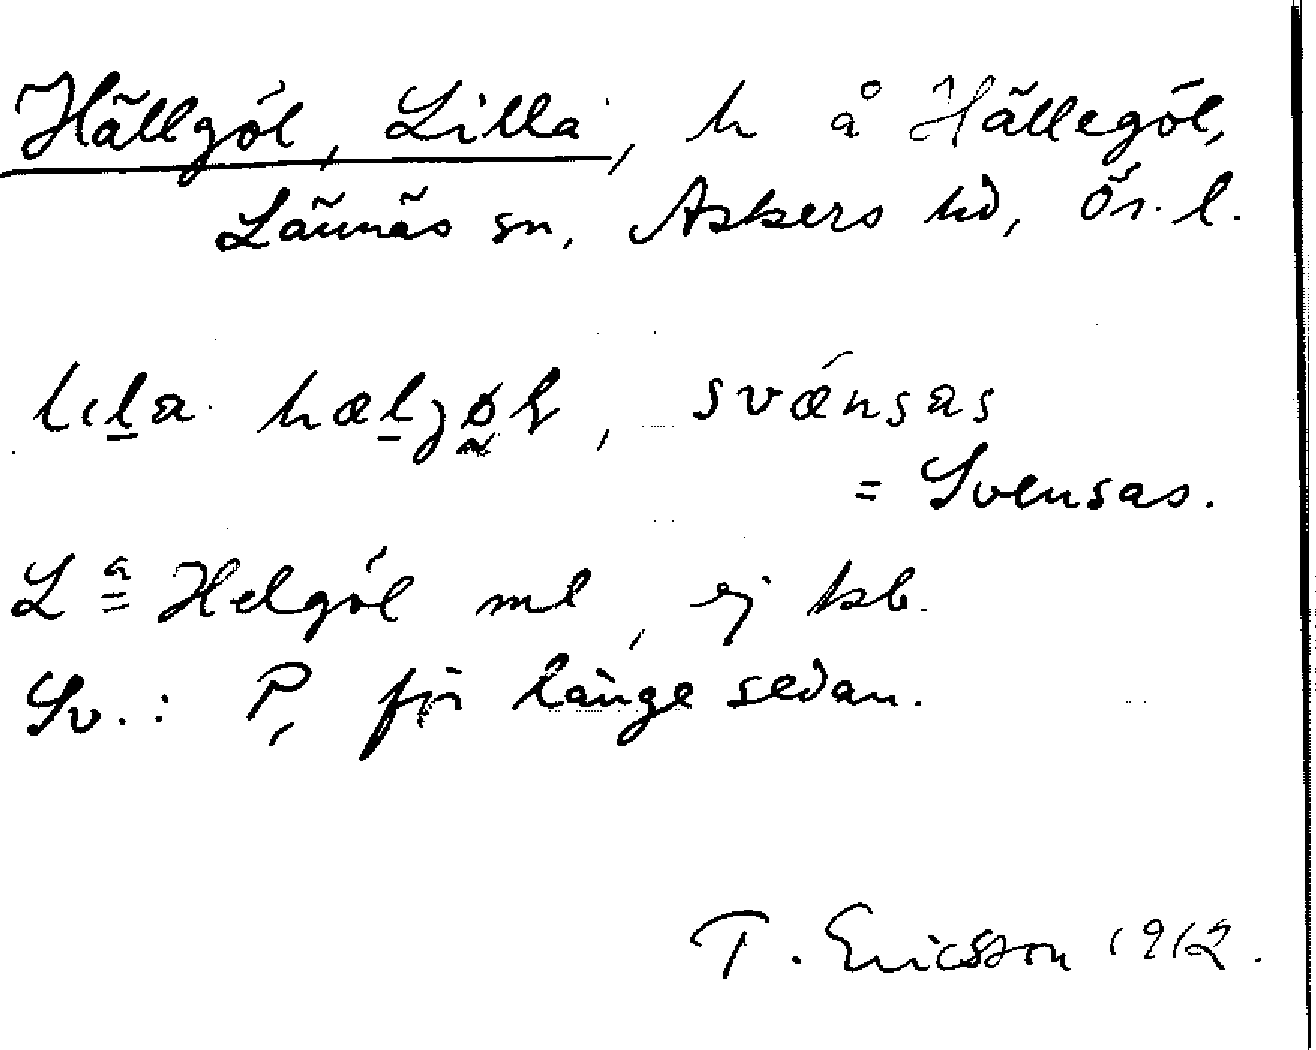 Hällgöl, Lilla, h å Hällegöl,
Lännäs sn, Askers hd, Ör. l.
lıla hælgøl, svænsas
= Svensas.
L ª Helgöl ml, ej kb.
Sv. : P, för länge sedan.
T. Ericsson 1912.